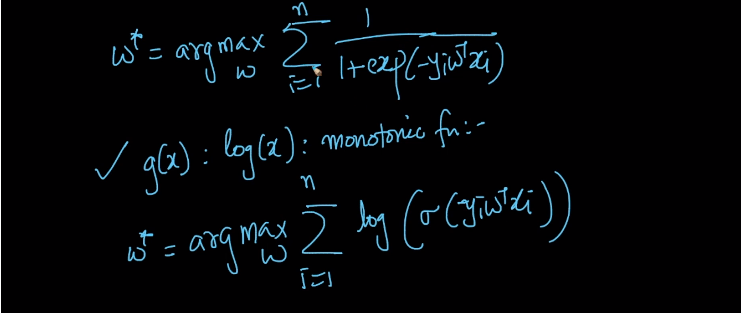 w* = argmax_w Σ_{i=1}^{n} 1 / (1+exp(-yᵢwᵀxᵢ))
✓ g(x) : log(x) : monotonic fn:-
w* = argmax_w Σ_{i=1}^{n} log(σ(yᵢwᵀxᵢ))